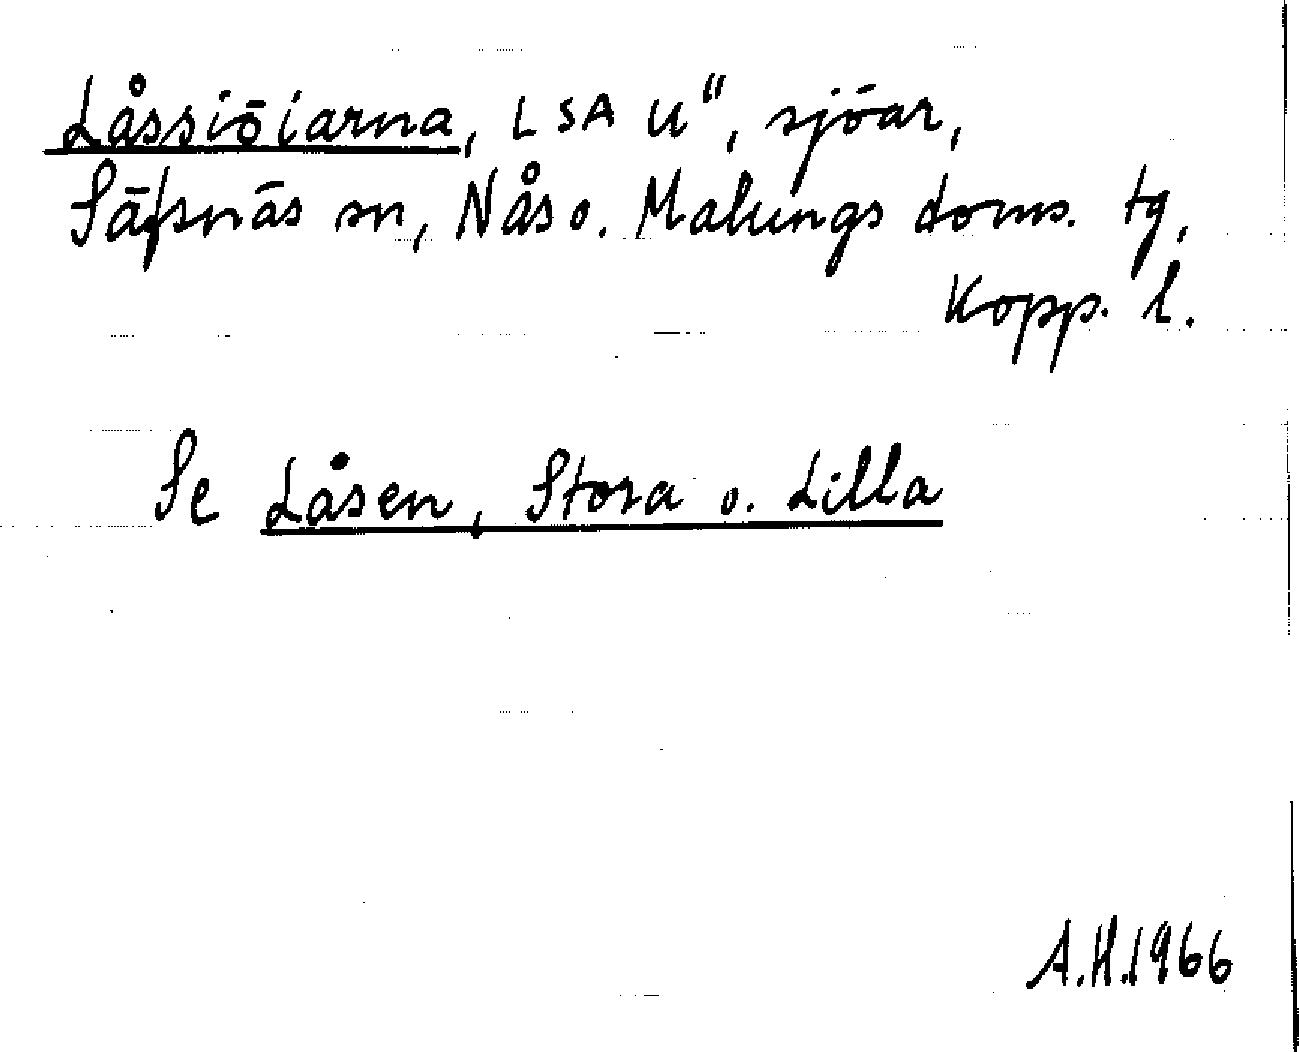 Låssiöiarna, LSA U", sjöar,
Säfsnäs sn, Nås o. Malungs doms. tg,
Kopp. l.
Se Låsen, Stora o. Lilla
A.H.1966